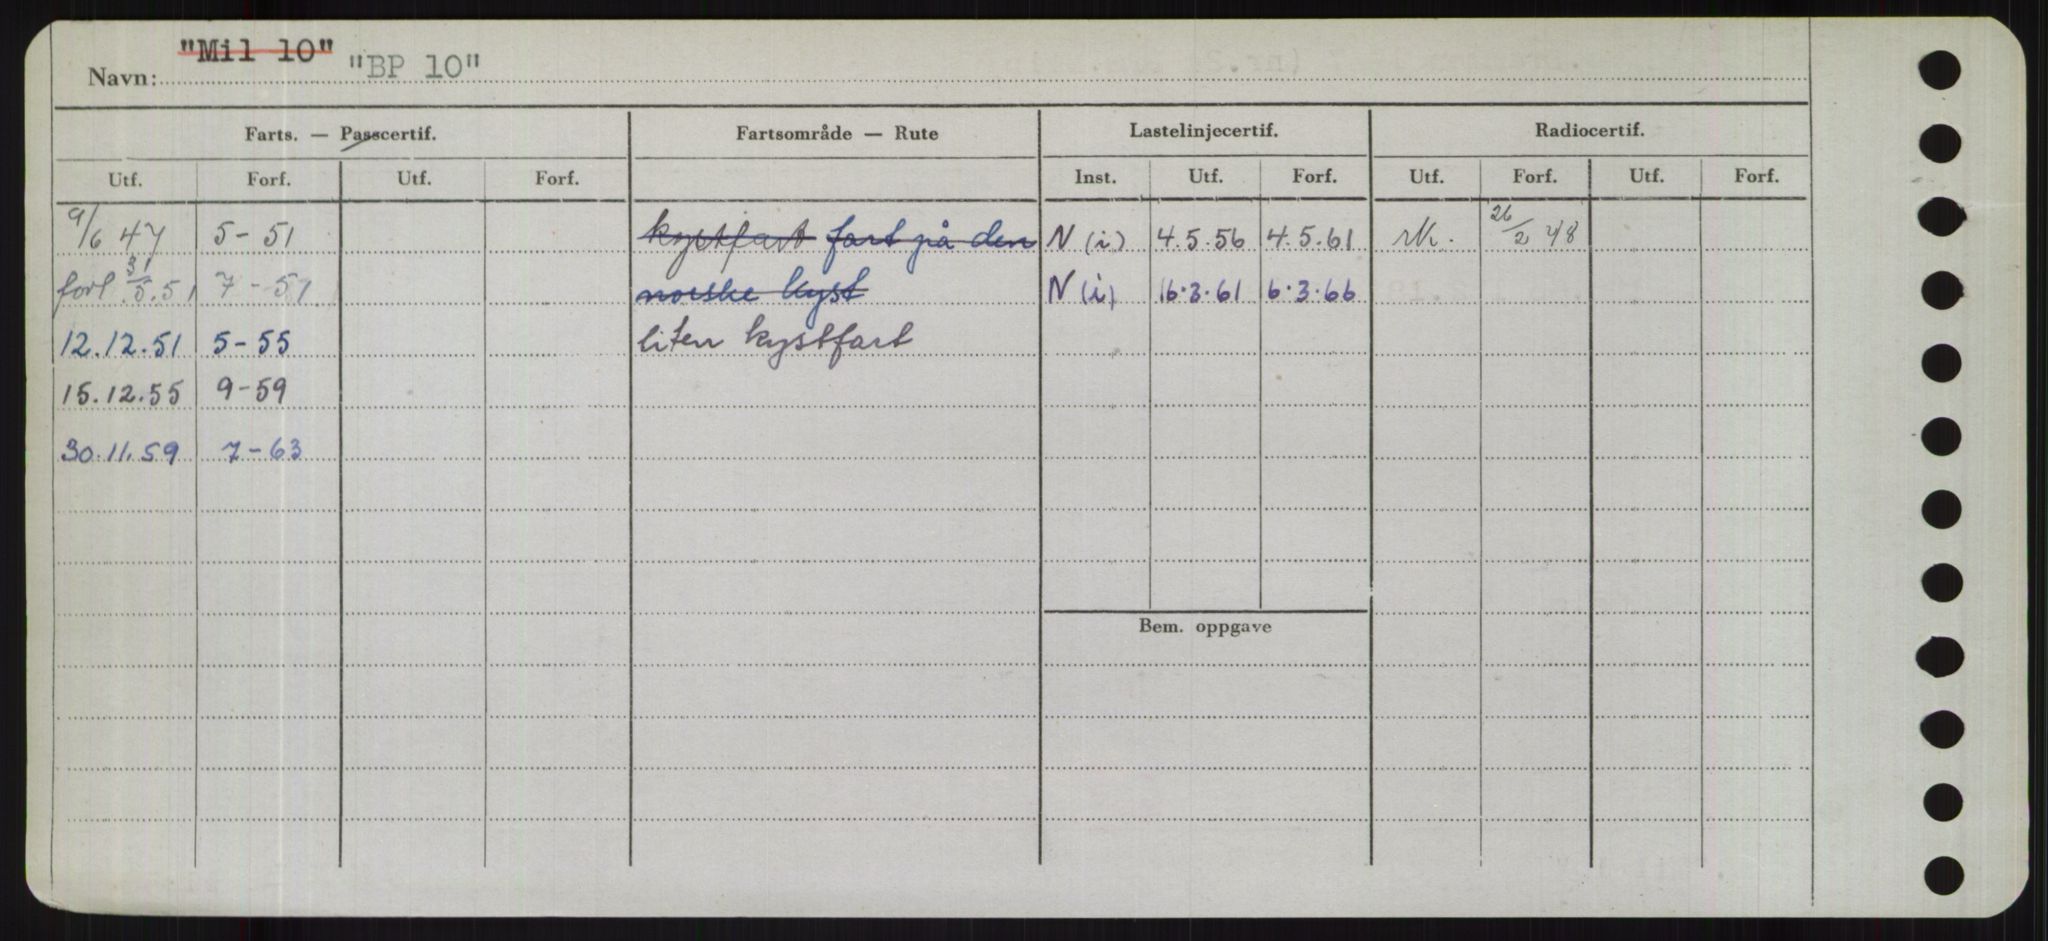 "Mil 10"
Navn: "BP 10"
Farts. — Passcertif. Fartsområde — Rute Lastelinjecertif. Radiocertif.
Utf. Forf. Utf. Forf. Inst. Utf. Forf. Utf. Forf. Utf. Forf.
9/6 47 5-51 kystfart fart på den N (i) 4.5.56 4.5.61 26/2 48
forl. 31/5.51 7-51 norske kyst N (i) 16.3.61 6.3.66
12.12.51 5-55 liten kystfart
15.12.55 9-59
30.11.59 7-63
Bem. oppgave